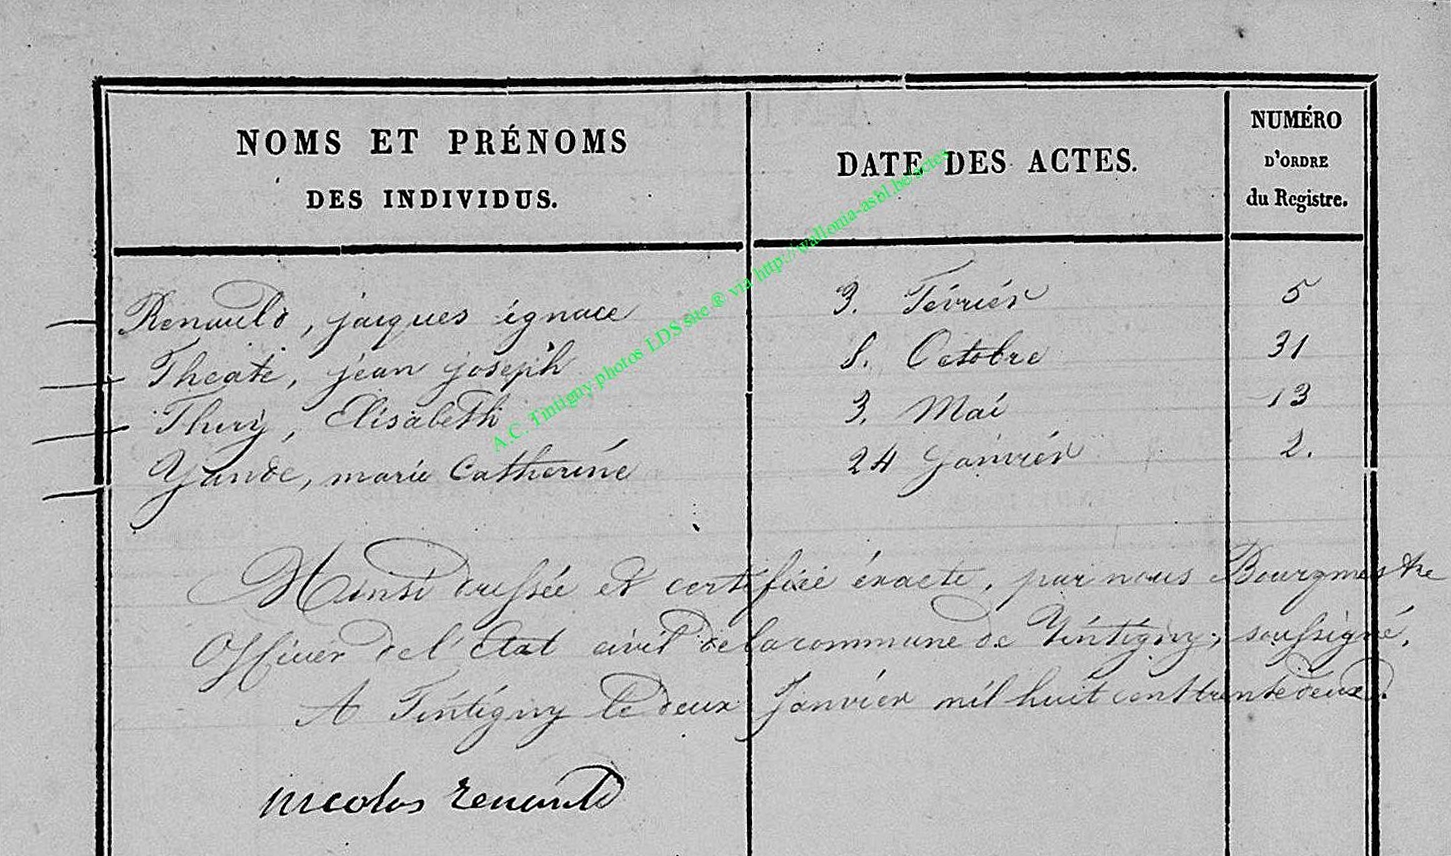 NOMS ET PRÉNOMS
DES INDIVIDUS.
DATE DES ACTES.
NUMÉRO
D'ORDRE
du Registre.
Renauld, jacques ignace 3. Février 5
Theate, jean joseph 8. Octobre 31
Thiry, Elisabeth 3. Mai 13
Yande, marie Catherine 24 Janvier 2.
Ainsi dressée et certifiée éxacte, par nous Bourgmestre
Officier de l'état civil de la commune de Tintigny, soussigné.
A Tintigny le deux Janvier mil huit cent trente deux.
nicolas renauld
A.C. Tintigny photos LDS site ® via http://wallonia-asbl.be/actes